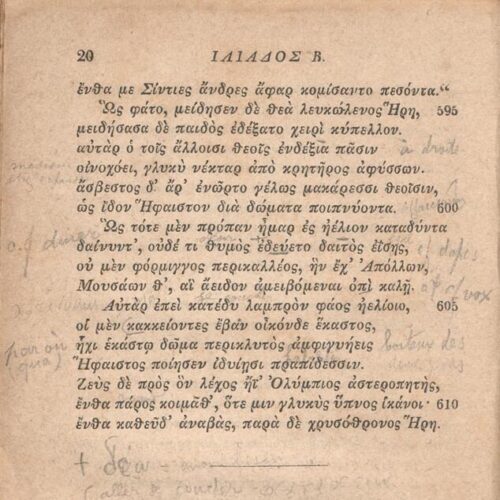 20 ΙΛΙΑΔΟΣ Β.
ἔνθα με Σίντιες ἄνδρες ἄφαρ κομίσαντο πεσόντα.“
Ὣς φάτο, μείδησεν δὲ θεὰ λευκώλενος Ἥρη, 595
μειδήσασα δὲ παιδὸς ἐδέξατο χειρὶ κύπελλον.
αὐτὰρ ὁ τοῖς ἄλλοισι θεοῖς ἐνδέξια πᾶσιν
à droite
οἰνοχόει, γλυκὺ νέκταρ ἀπὸ κρητῆρος ἀφύσσων.
ἄσβεστος δ' ἄρ' ἐνῶρτο γέλως μακάρεσσι θεοῖσιν,
ὡς ἴδον Ἥφαιστον διὰ δώματα ποιπνύοντα. 600
Ὣς τότε μὲν πρόπαν ἦμαρ ἐς ἠέλιον καταδύντα
δαίνυντ', οὐδέ τι θυμὸς ἐδεύετο δαιτὸς ἐίσης,
οὐ μὲν φόρμιγγος περικαλλέος, ἣν ἔχ' Ἀπόλλων,
Μουσάων θ', αἳ ἄειδον ἀμειβόμεναι ὀπὶ καλῇ.
Αὐτὰρ ἐπεὶ κατέδυ λαμπρὸν φάος ἠελίοιο, 605
οἱ μὲν κακκείοντες ἔβαν οἶκόνδε ἕκαστος,
par où
ἧχι ἑκάστῳ δῶμα περικλυτὸς ἀμφιγυήεις
boiteux des
Ἥφαιστος ποίησεν ἰδυίῃσι πραπίδεσσιν.
Ζεὺς δὲ πρὸς ὃν λέχος ἤϊ' Ὀλύμπιος ἀστεροπητής,
ἔνθα πάρος κοιμᾶθ', ὅτε μιν γλυκὺς ὕπνος ἱκάνοι· 610
ἔνθα καθεῦδ' ἀναβάς, παρὰ δὲ χρυσόθρονος Ἥρη.